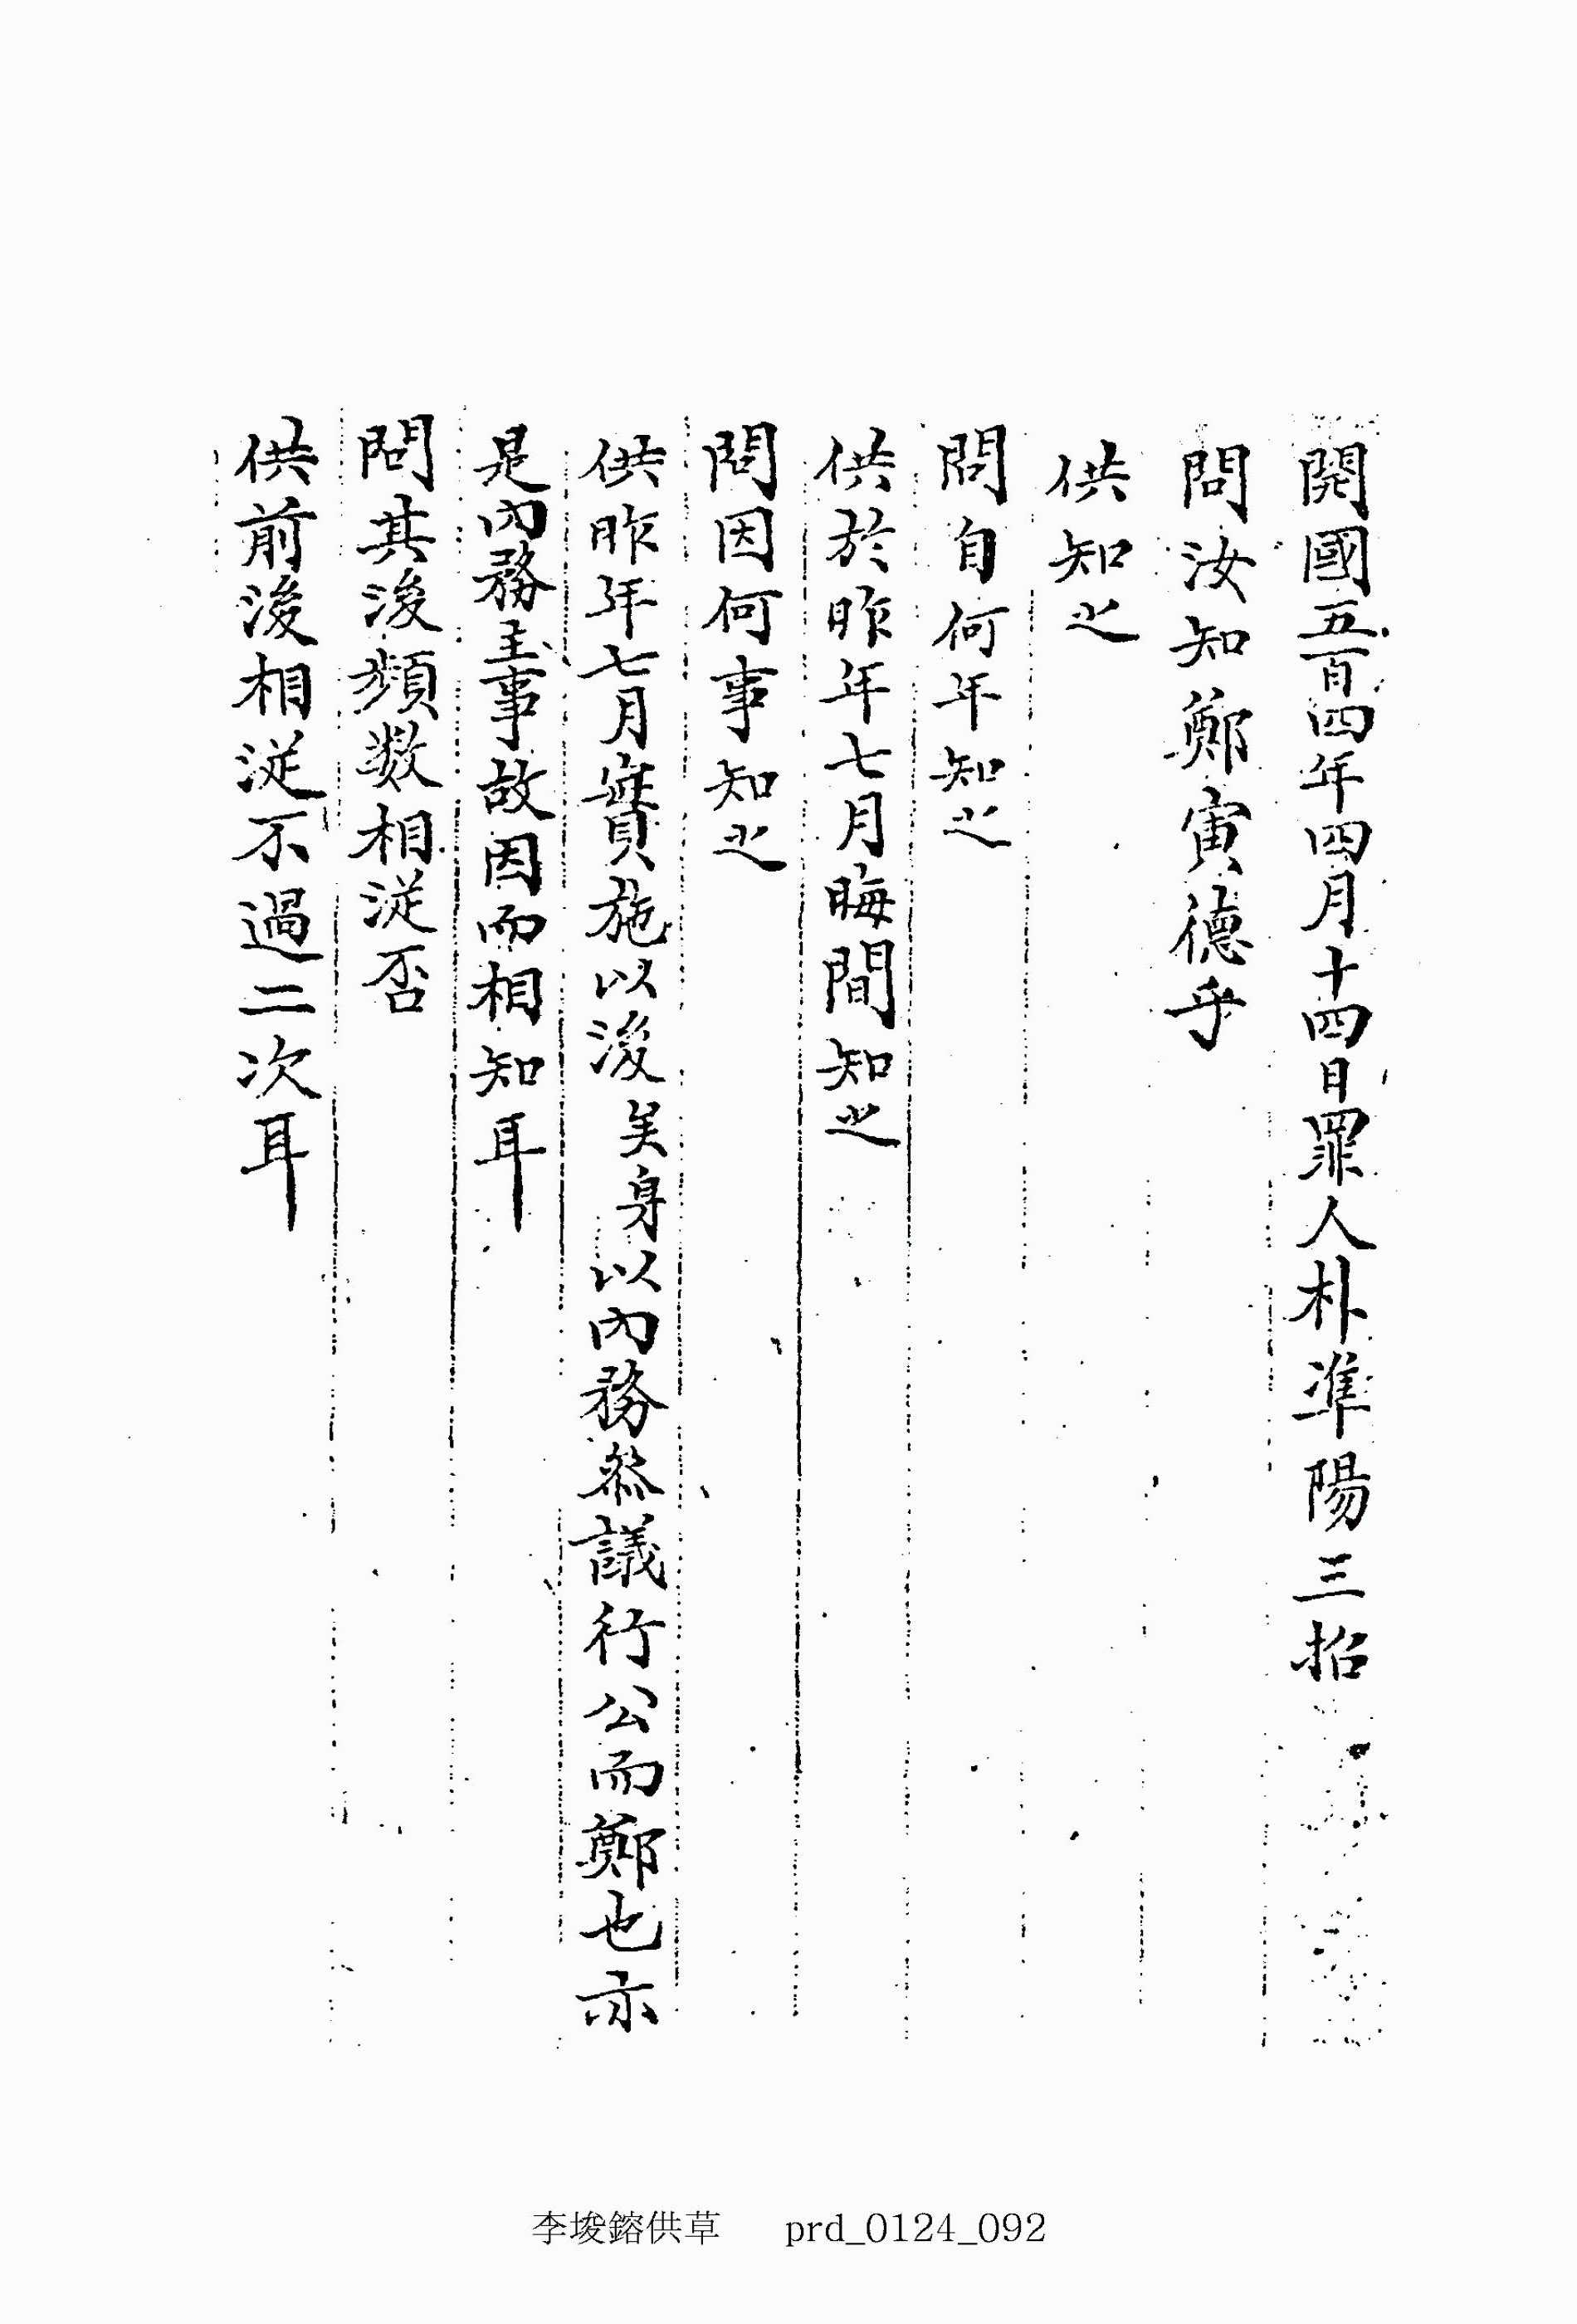 開國五百四年四月十四日罪人朴準陽三招
問汝知鄭寅德乎
供知之
問自何年知之
供於昨年七月晦間知之
問因何事知之
供昨年七月實施以後矣身以內務參議行公而鄭也亦
是內務主事故因而相知耳
問其後頻數相從否
供前後相從不過二次耳
李埈鎔供草 prd_0124_092